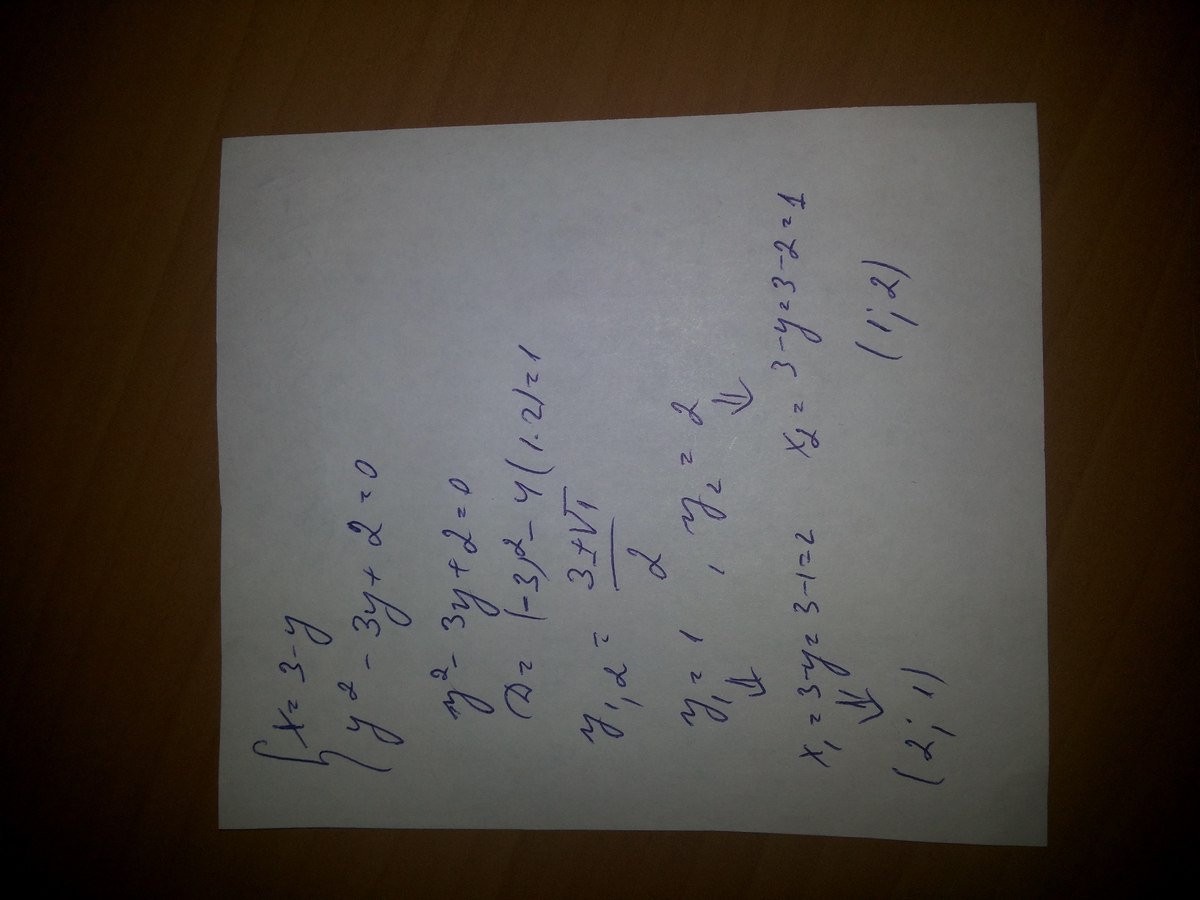 x = 3 - y
y² - 3y + 2 = 0
y² - 3y + 2 = 0
D = (-3)² - 4(1·2) = 1
y1,2 = (3 ± √1) / 2
y₁ = 1 , y₂ = 2
⇓ ⇓
x₁ = 3 - y = 3 - 1 = 2 x₂ = 3 - y = 3 - 2 = 1
⇓
(2; 1) (1; 2)